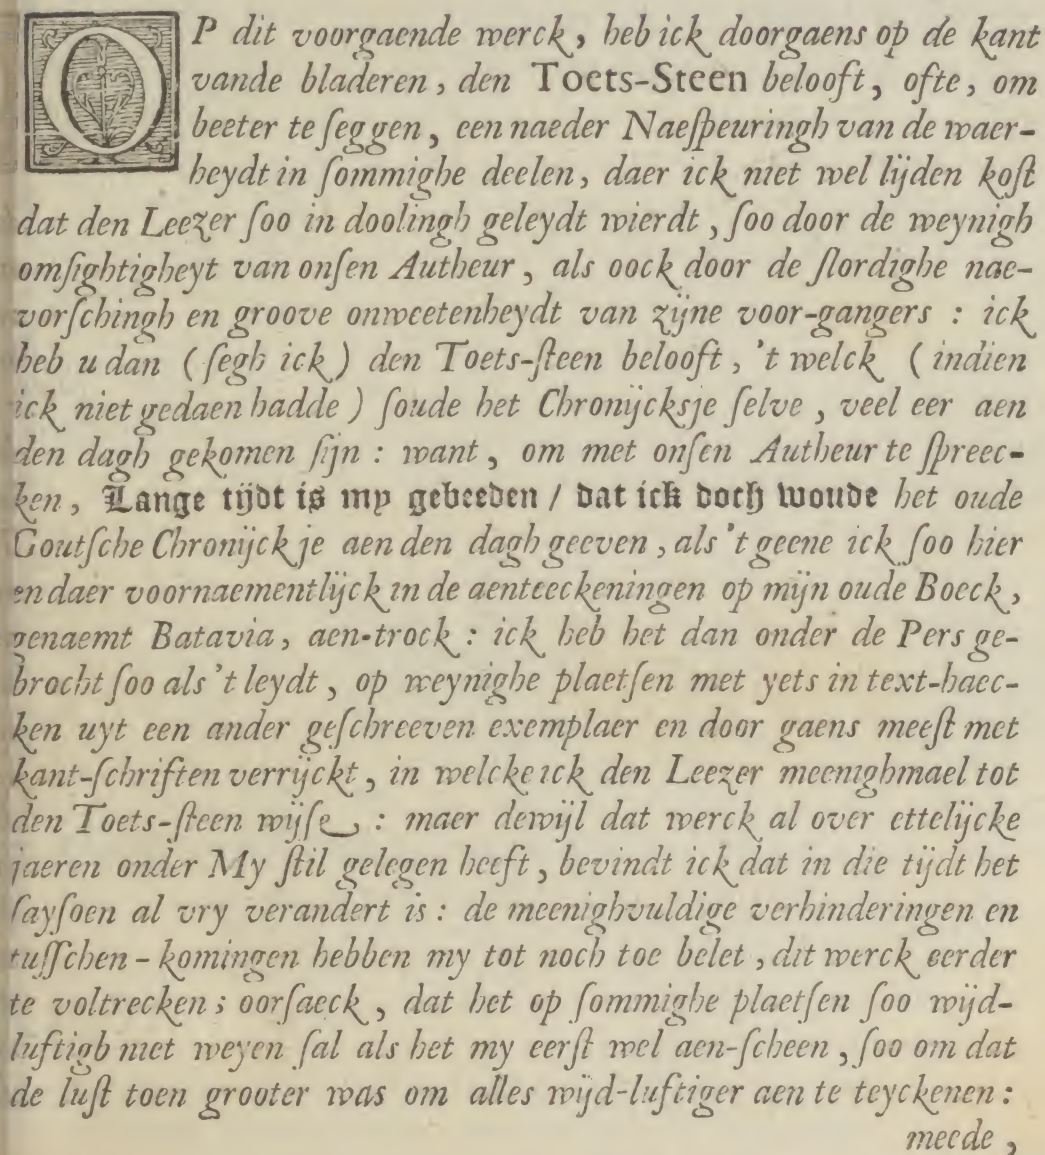 OP dit voorgaende werck, heb ick doorgaens op de kant
vande bladeren, den Toets-Steen belooft, ofte, om
beeter te seggen, een naeder Naespeuringh van de waer-
heydt in sommighe deelen, daer ick niet wel lijden kost
dat den Leezer soo in doolingh geleydt wierdt, soo door de weynigh
omsightigheyt van onsen Autheur, als oock door de slordighe nae-
vorschingh en groove onweetenheydt van zijne voor-gangers : ick
heb u dan (segh ick) den Toets-steen belooft, 't welck (indien
ick niet gedaen hadde) soude het Chronijcksje selve, veel eer aen
den dagh gekomen sijn : want, om met onsen Autheur te spreec-
ken, Lange tijdt is my gebeeden / dat ick doch woude het oude
Goutsche Chronijckje aen den dagh geeven, als 't geene ick soo hier
en daer voornaementlijck in de aenteeckeningen op mijn oude Boeck,
genaemt Batavia, aen-trock : ick heb het dan onder de Pers ge-
brocht soo als 't leydt, op weynighe plaetsen met yets in text-haec-
ken uyt een ander geschreeven exemplaer en door gaens meest met
kant-schriften verrijckt, in welcke ick den Leezer meenighmael tot
den Toets-steen wijse : maer dewijl dat werck al over ettelijcke
jaeren onder My stil gelegen heeft, bevindt ick dat in die tijdt het
saysoen al vry verandert is : de meenighvuldige verhinderingen en
tusschen-komingen hebben my tot noch toe belet, dit werck eerder
te voltrecken ; oorsaeck, dat het op sommighe plaetsen soo wijd-
luftigh niet weyen sal als het my eerst wel aen-scheen, soo om dat
de lust toen grooter was om alles wijd-luftiger aen te teyckenen :
meede,